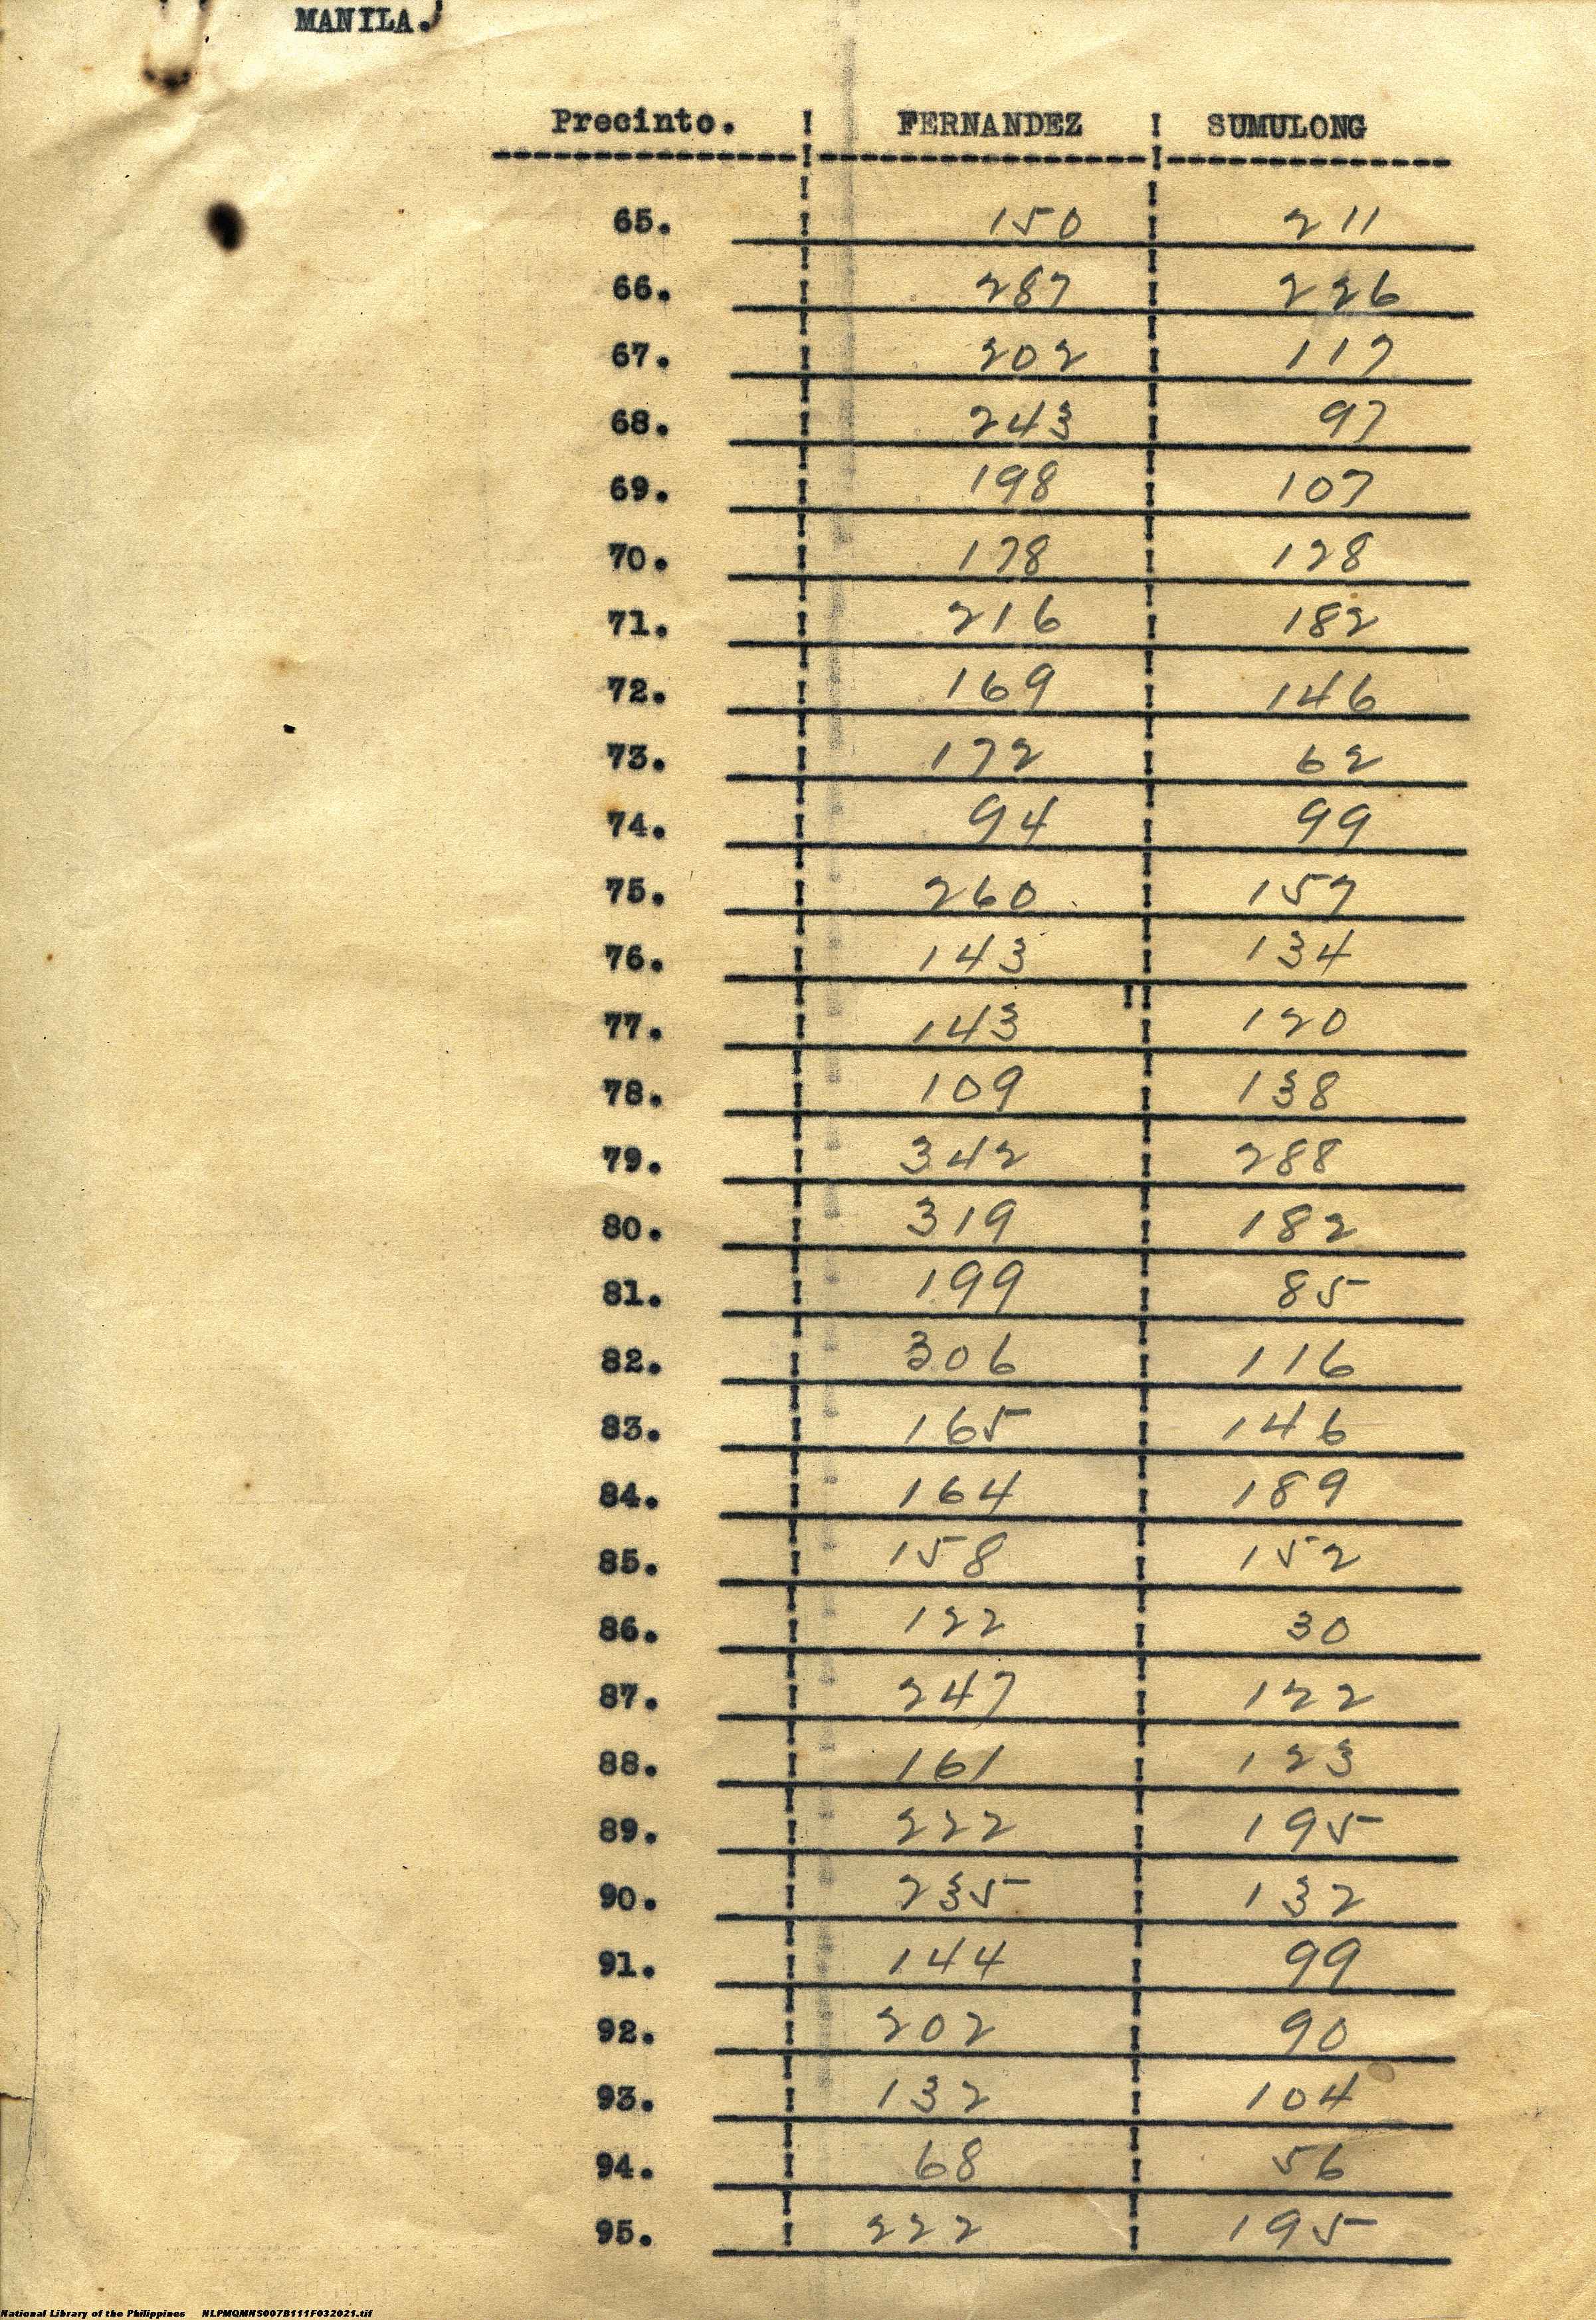 MANILA.
Precinto. ! FERNANDEZ ! SUMULONG
65. ! 150 ! 211
66. ! 287 ! 226
67. ! 202 ! 117
68. ! 243 ! 97
69. ! 198 ! 107
70. ! 178 ! 128
71. ! 216 ! 182
72. ! 169 ! 146
73. ! 172 ! 62
74. ! 94 ! 99
75. ! 260 ! 157
76. ! 143 ! 134
77. ! 143 ! 120
78. ! 109 ! 138
79. ! 342 ! 288
80. ! 319 ! 182
81. ! 199 ! 85
82. ! 306 ! 116
83. ! 165 ! 146
84. ! 164 ! 189
85. ! 158 ! 152
86. ! 122 ! 30
87. ! 247 ! 122
88. ! 161 ! 123
89. ! 222 ! 195
90. ! 235 ! 132
91. ! 144 ! 99
92. ! 202 ! 90
93. ! 132 ! 104
94. ! 68 ! 56
95. ! 222 ! 195
National Library of the Philippines NLPMQMNS007B111F032021.tif